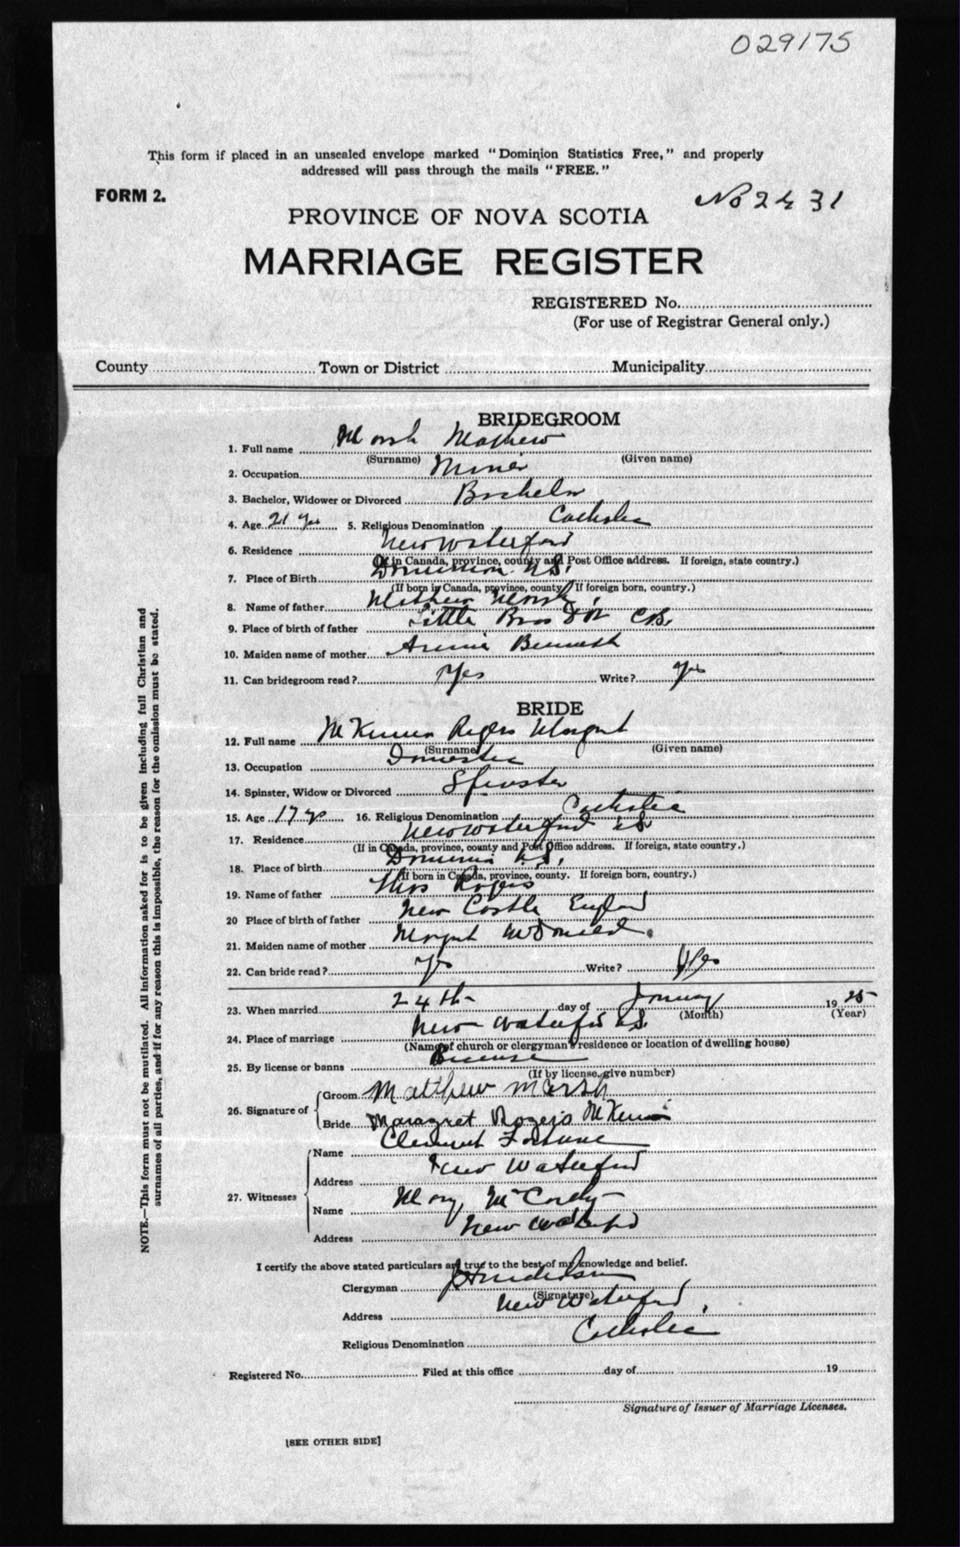 029175
This form if placed in an unsealed envelope marked "Dominion Statistics Free," and properly
addressed will pass through the mails "FREE."
FORM 2.
No 2431
PROVINCE OF NOVA SCOTIA
MARRIAGE REGISTER
REGISTERED No.
(For use of Registrar General only.)
County Town or District Municipality
BRIDEGROOM
1. Full name Marsh Mathew
(Surname) (Given name)
2. Occupation Miner
3. Bachelor, Widower or Divorced Bachelor
4. Age 21 yrs 5. Religious Denomination Catholic
6. Residence New Waterford
(If in Canada, province, county and Post Office address. If foreign, state country.)
7. Place of Birth Dominion N.S.
(If born in Canada, province, county. If foreign born, country.)
8. Name of father Mathew Marsh
9. Place of birth of father Little Bras D'Or C.B.
10. Maiden name of mother Annie
11. Can bridegroom read? Yes Write? Yes
BRIDE
12. Full name McKinnon Rogers Margret
(Surname) (Given name)
13. Occupation Domestic
14. Spinster, Widow or Divorced Spinster
15. Age 17 yrs 16. Religious Denomination Catholic
17. Residence New Waterford N.S.
(If in Canada, province, county and Post Office address. If foreign, state country.)
18. Place of birth Dominion N.S.
(If born in Canada, province, county. If foreign born, country.)
19. Name of father Thos Rogers
20 Place of birth of father New Castle England
21. Maiden name of mother Margret McDonald
22. Can bride read? Yes Write? Yes
23. When married 24th day of January 1925
(Month) (Year)
24. Place of marriage New Waterford N.S.
(Name of church or clergyman's residence or location of dwelling house)
25. By license or banns License
(If by license, give number)
26. Signature of
Groom Matthew Marsh
Bride Margret Rogers McKinnon
27. Witnesses
Name Clement Fortune
Address New Waterford
Name Mary McCarthy
Address New Waterford
I certify the above stated particulars are true to the best of my knowledge and belief.
Clergyman
(Signature)
Address New Waterford
Religious Denomination Catholic
Registered No. Filed at this office day of 19
Signature of Issuer of Marriage Licenses.
[SEE OTHER SIDE]
NOTE.—This form must not be mutilated. All information asked for is to be given including full Christian and
surnames of all parties, and if for any reason this is impossible, the reason for the omission must be stated.